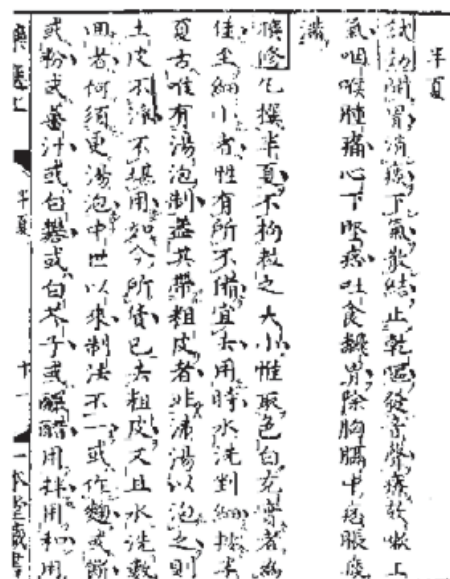 半夏
試効開胃消痰下氣散結止乾嘔發音聲療欬嗽上
氣咽喉腫痛心下堅痞吐食翻胃除胸膈中痰脹痰
撰修乞撰半夏不拘粒之大小惟取色白充實者為
佳至細小者性有所不備宜去用時水洗剉細按半
夏古唯有湯泡制蓋其帶粗皮者非沸湯以泡之則
土皮不淨不堪用如今所貨已去粗皮又且水洗數
用者何須更湯泡中世以來制法不一或作麯或
或粉或薑汁或白礬或白芥子或釅醋用拌用和用
半夏
十一
一本堂藏書